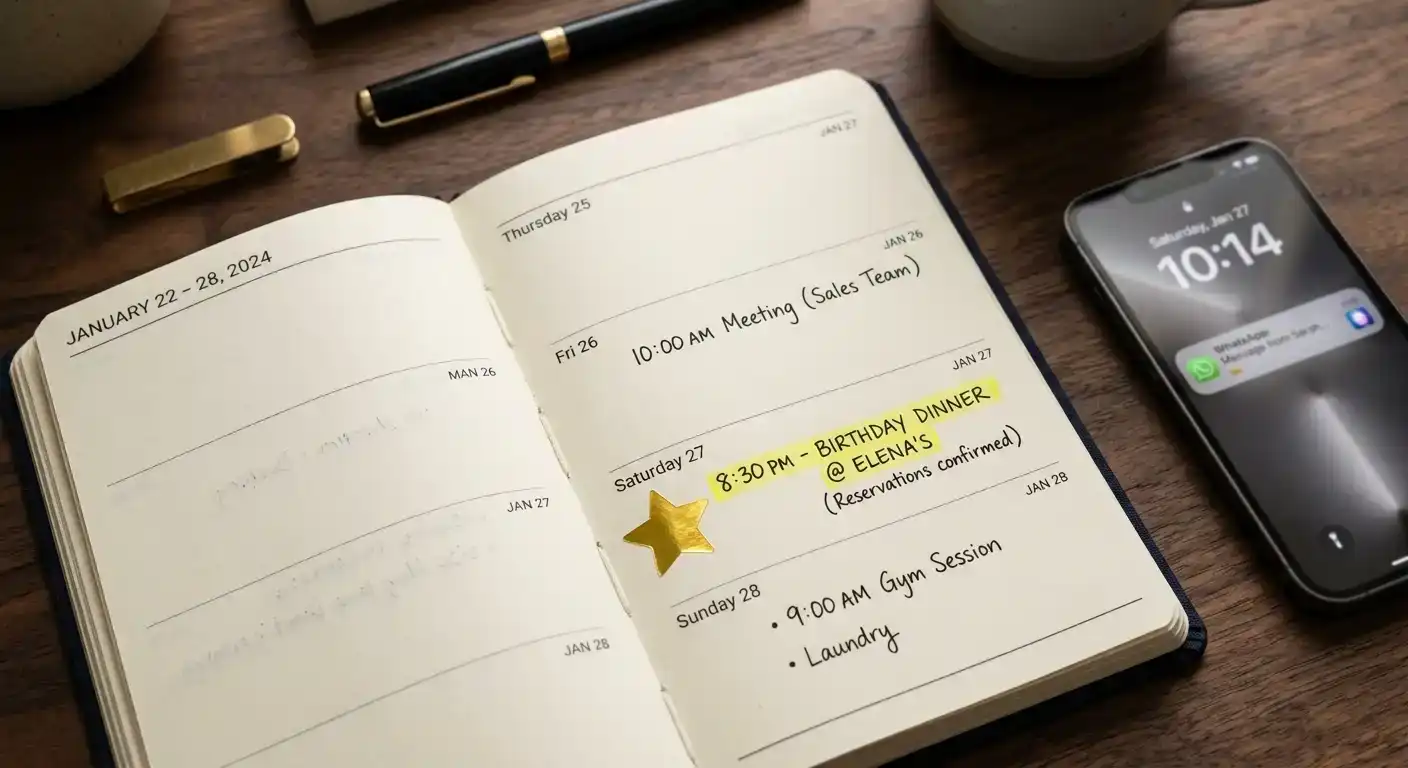 JANUARY 22 – 28, 2024
MAN 26
JAN 27
JAN 28
JAN 27
Thursday 25
JAN 26
Fri 26
10:00 AM Meeting (Sales Team)
JAN 27
Saturday 27
8:30 PM – BIRTHDAY DINNER
@ ELENA'S
(Reservations confirmed)
JAN 28
Sunday 28
• 9:00 AM Gym Session
• Laundry
Saturday, Jan 27
10:14
WhatsApp
Message from